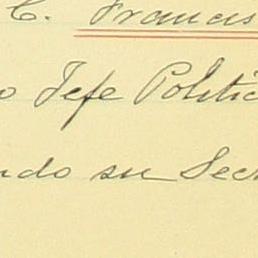 C. Francis
o Jefe Polític
ndo su Sec